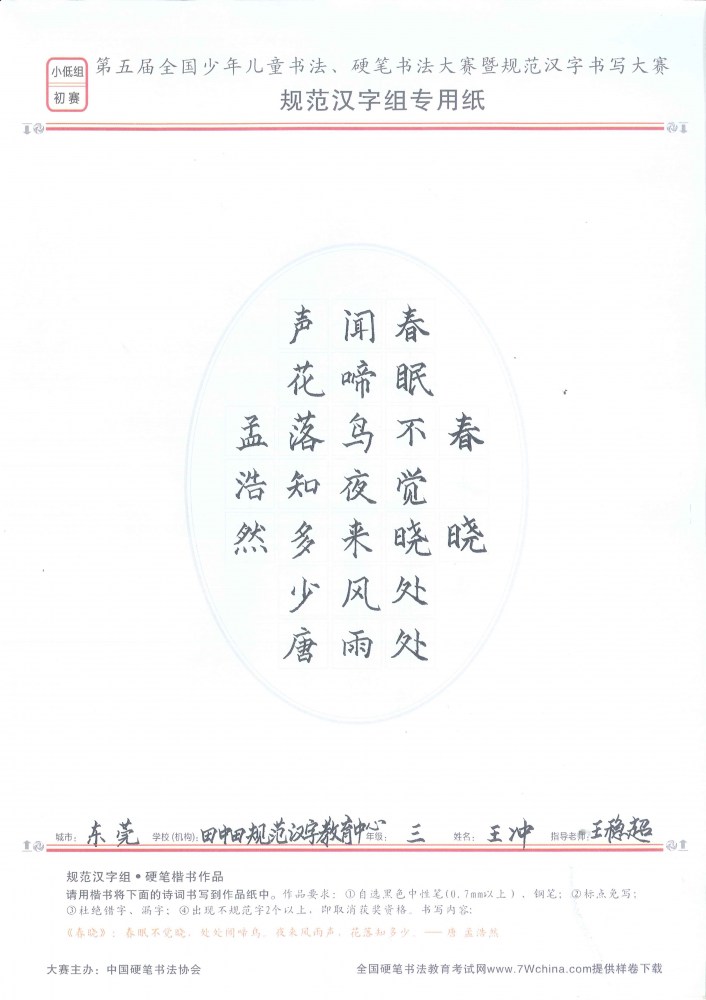 小低组
初赛
第五届全国少年儿童书法、硬笔书法大赛暨规范汉字书写大赛
规范汉字组专用纸
春晓
春眠不觉晓处处
闻啼鸟夜来风雨
声花落知多少唐
孟浩然
城市：东莞 学校(机构)：田中田规范汉字教育中心 年级：三 姓名：王冲 指导老师：王稳超
规范汉字组•硬笔楷书作品
请用楷书将下面的诗词书写到作品纸中。作品要求：①自选黑色中性笔(0.7mm以上)、钢笔；②标点免写；
③杜绝错字、漏字；④出现不规范字2个以上，即取消获奖资格。书写内容：
《春晓》：春眠不觉晓，处处闻啼鸟。夜来风雨声，花落知多少。——唐 孟浩然
大赛主办：中国硬笔书法协会
全国硬笔书法教育考试网www.7Wchina.com提供样卷下载